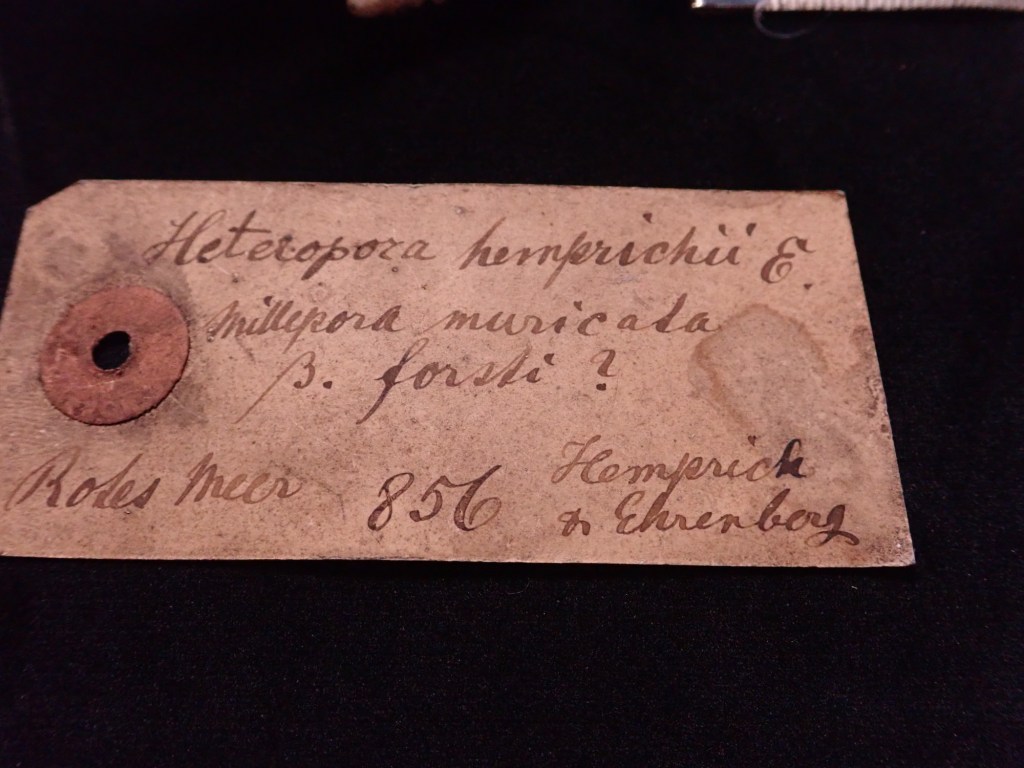 Heteropora hemprichii E.
Millepora muricata
β. forsti ?
Rotes Meer 856 Hemprich
& Ehrenberg